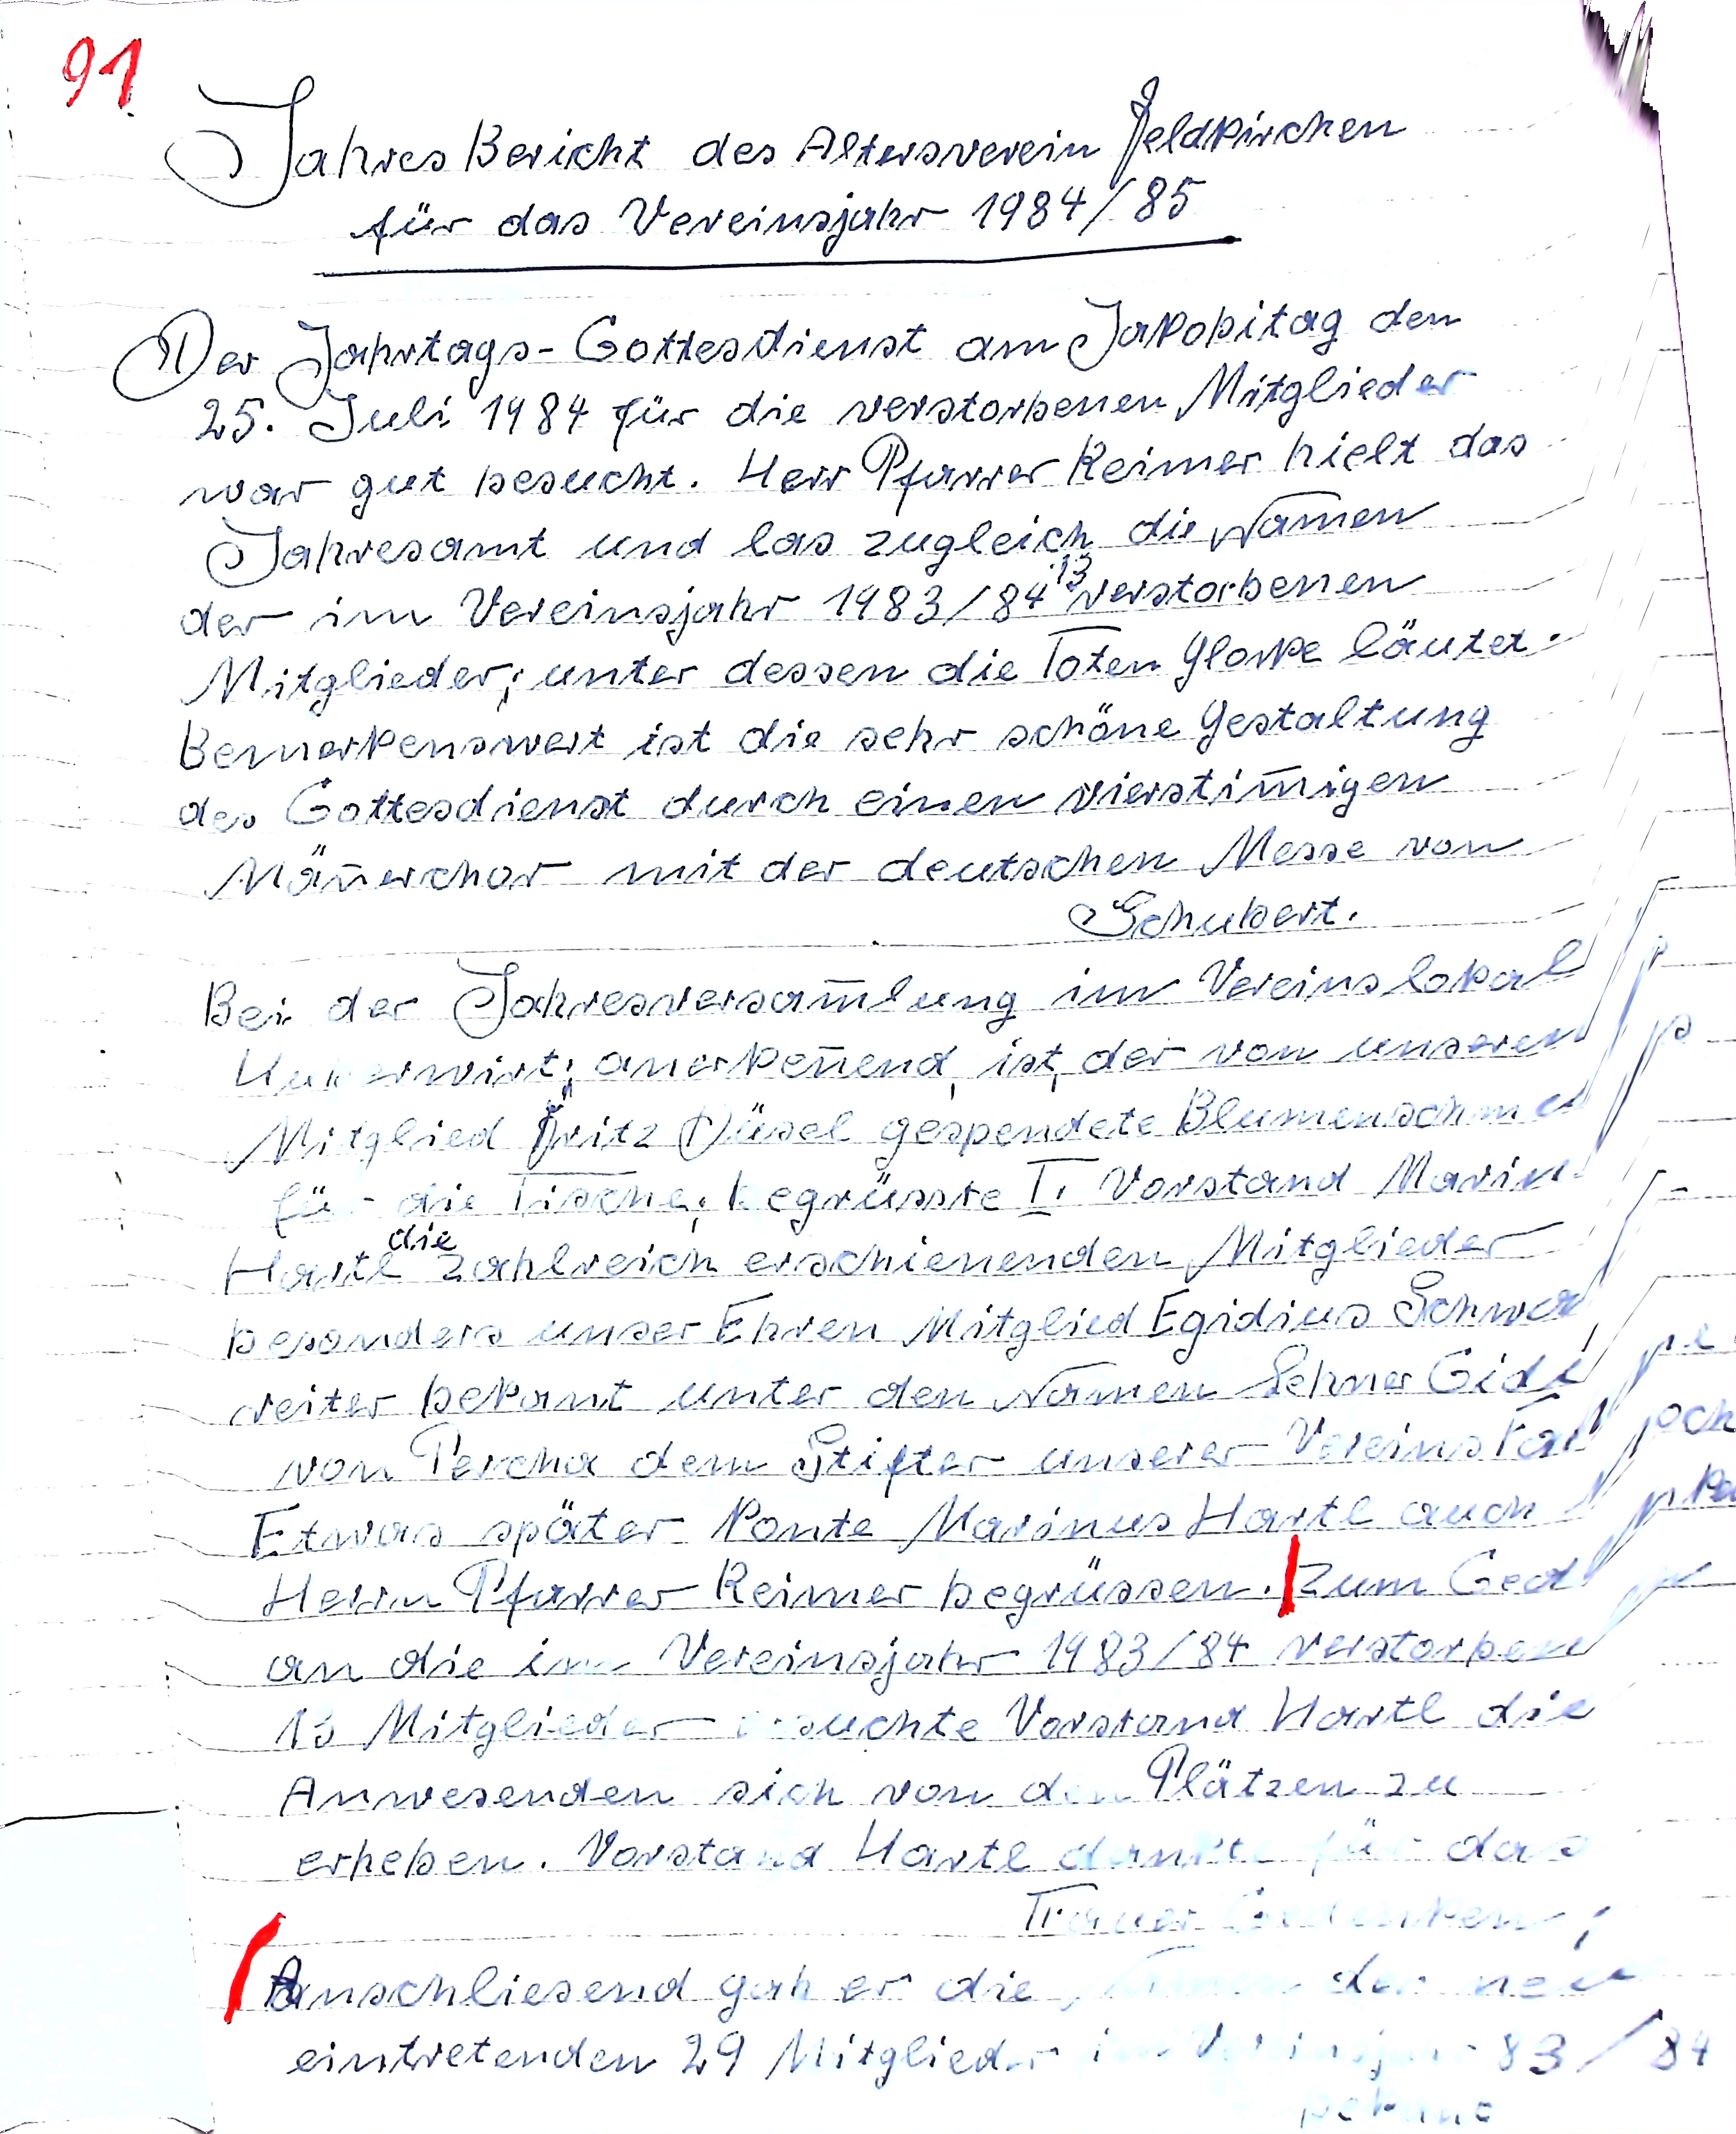 91
Jahres Bericht des Altersverein Feldkirchen
für das Vereinsjahr 1984/85
Der Jahrtags-Gottesdienst am Jakobitag den
25. Juli 1984 für die verstorbenen Mitglieder
war gut besucht. Herr Pfarrer Reimer hielt das
Jahresamt und las zugleich die Namen
der im Vereinsjahr 1983/84 13 verstorbenen
Mitglieder; unter dessen die Toten Glocke läutet.
Bemerkenswert ist die sehr schöne Gestaltung
des Gottesdienst durch einen vierstim̄igen
Män̄erchor mit der deutschen Messe von
Schubert.
Bei der Jahresversam̄lung im Vereinslokal
anerken̄end ist der von unseren
Mitglied Fritz Düsel gespendete
für die Tische; begrüsste I. Vorstand
Hartl die zahlreich erschienenden Mitglieder
besonders unser Ehren Mitglied Egidius
reiter bekan̄t unter den Namen Lehner Gidi
von Percha dem Stifter unserer
Etwas später konte Marinus Hartl auch
Herrn Pfarrer Reimer begrüssen. zum
an die im Vereinsjahr 1983/84
13 Mitglieder ersuchte Vorstand Hartl die
Anwesenden sich von den Plätzen zu
erheben. Vorstand Hartl dankte für das
Trauer Gedenken;
Anschliesend gab er die Namen der neu
eintretenden 29 Mitglieder im Vereinsjahr 83/84
bekannt